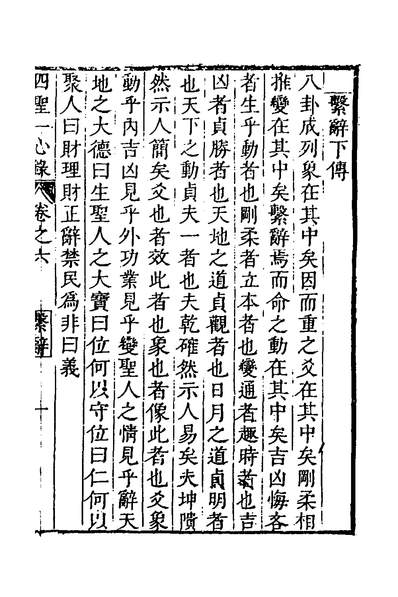 繫辭下傳
八卦成列象在其中矣因而重之爻在其中矣剛柔相
推變在其中矣繫辭焉而命之動在其中矣吉凶悔吝
者生乎動者也剛柔者立本者也變通者趣時者也吉
凶者貞勝者也天地之道貞觀者也日月之道貞明者
也天下之動貞夫一者也夫乾確然示人易矣夫坤隤
然示人簡矣爻也者效此者也象也者像此者也爻象
動乎內吉凶見乎外功業見乎變聖人之情見乎辭天
地之大德曰生聖人之大寶曰位何以守位曰仁何以
聚人曰財理財正辭禁民為非曰義
四聖一心錄 卷之六 繫辭 一